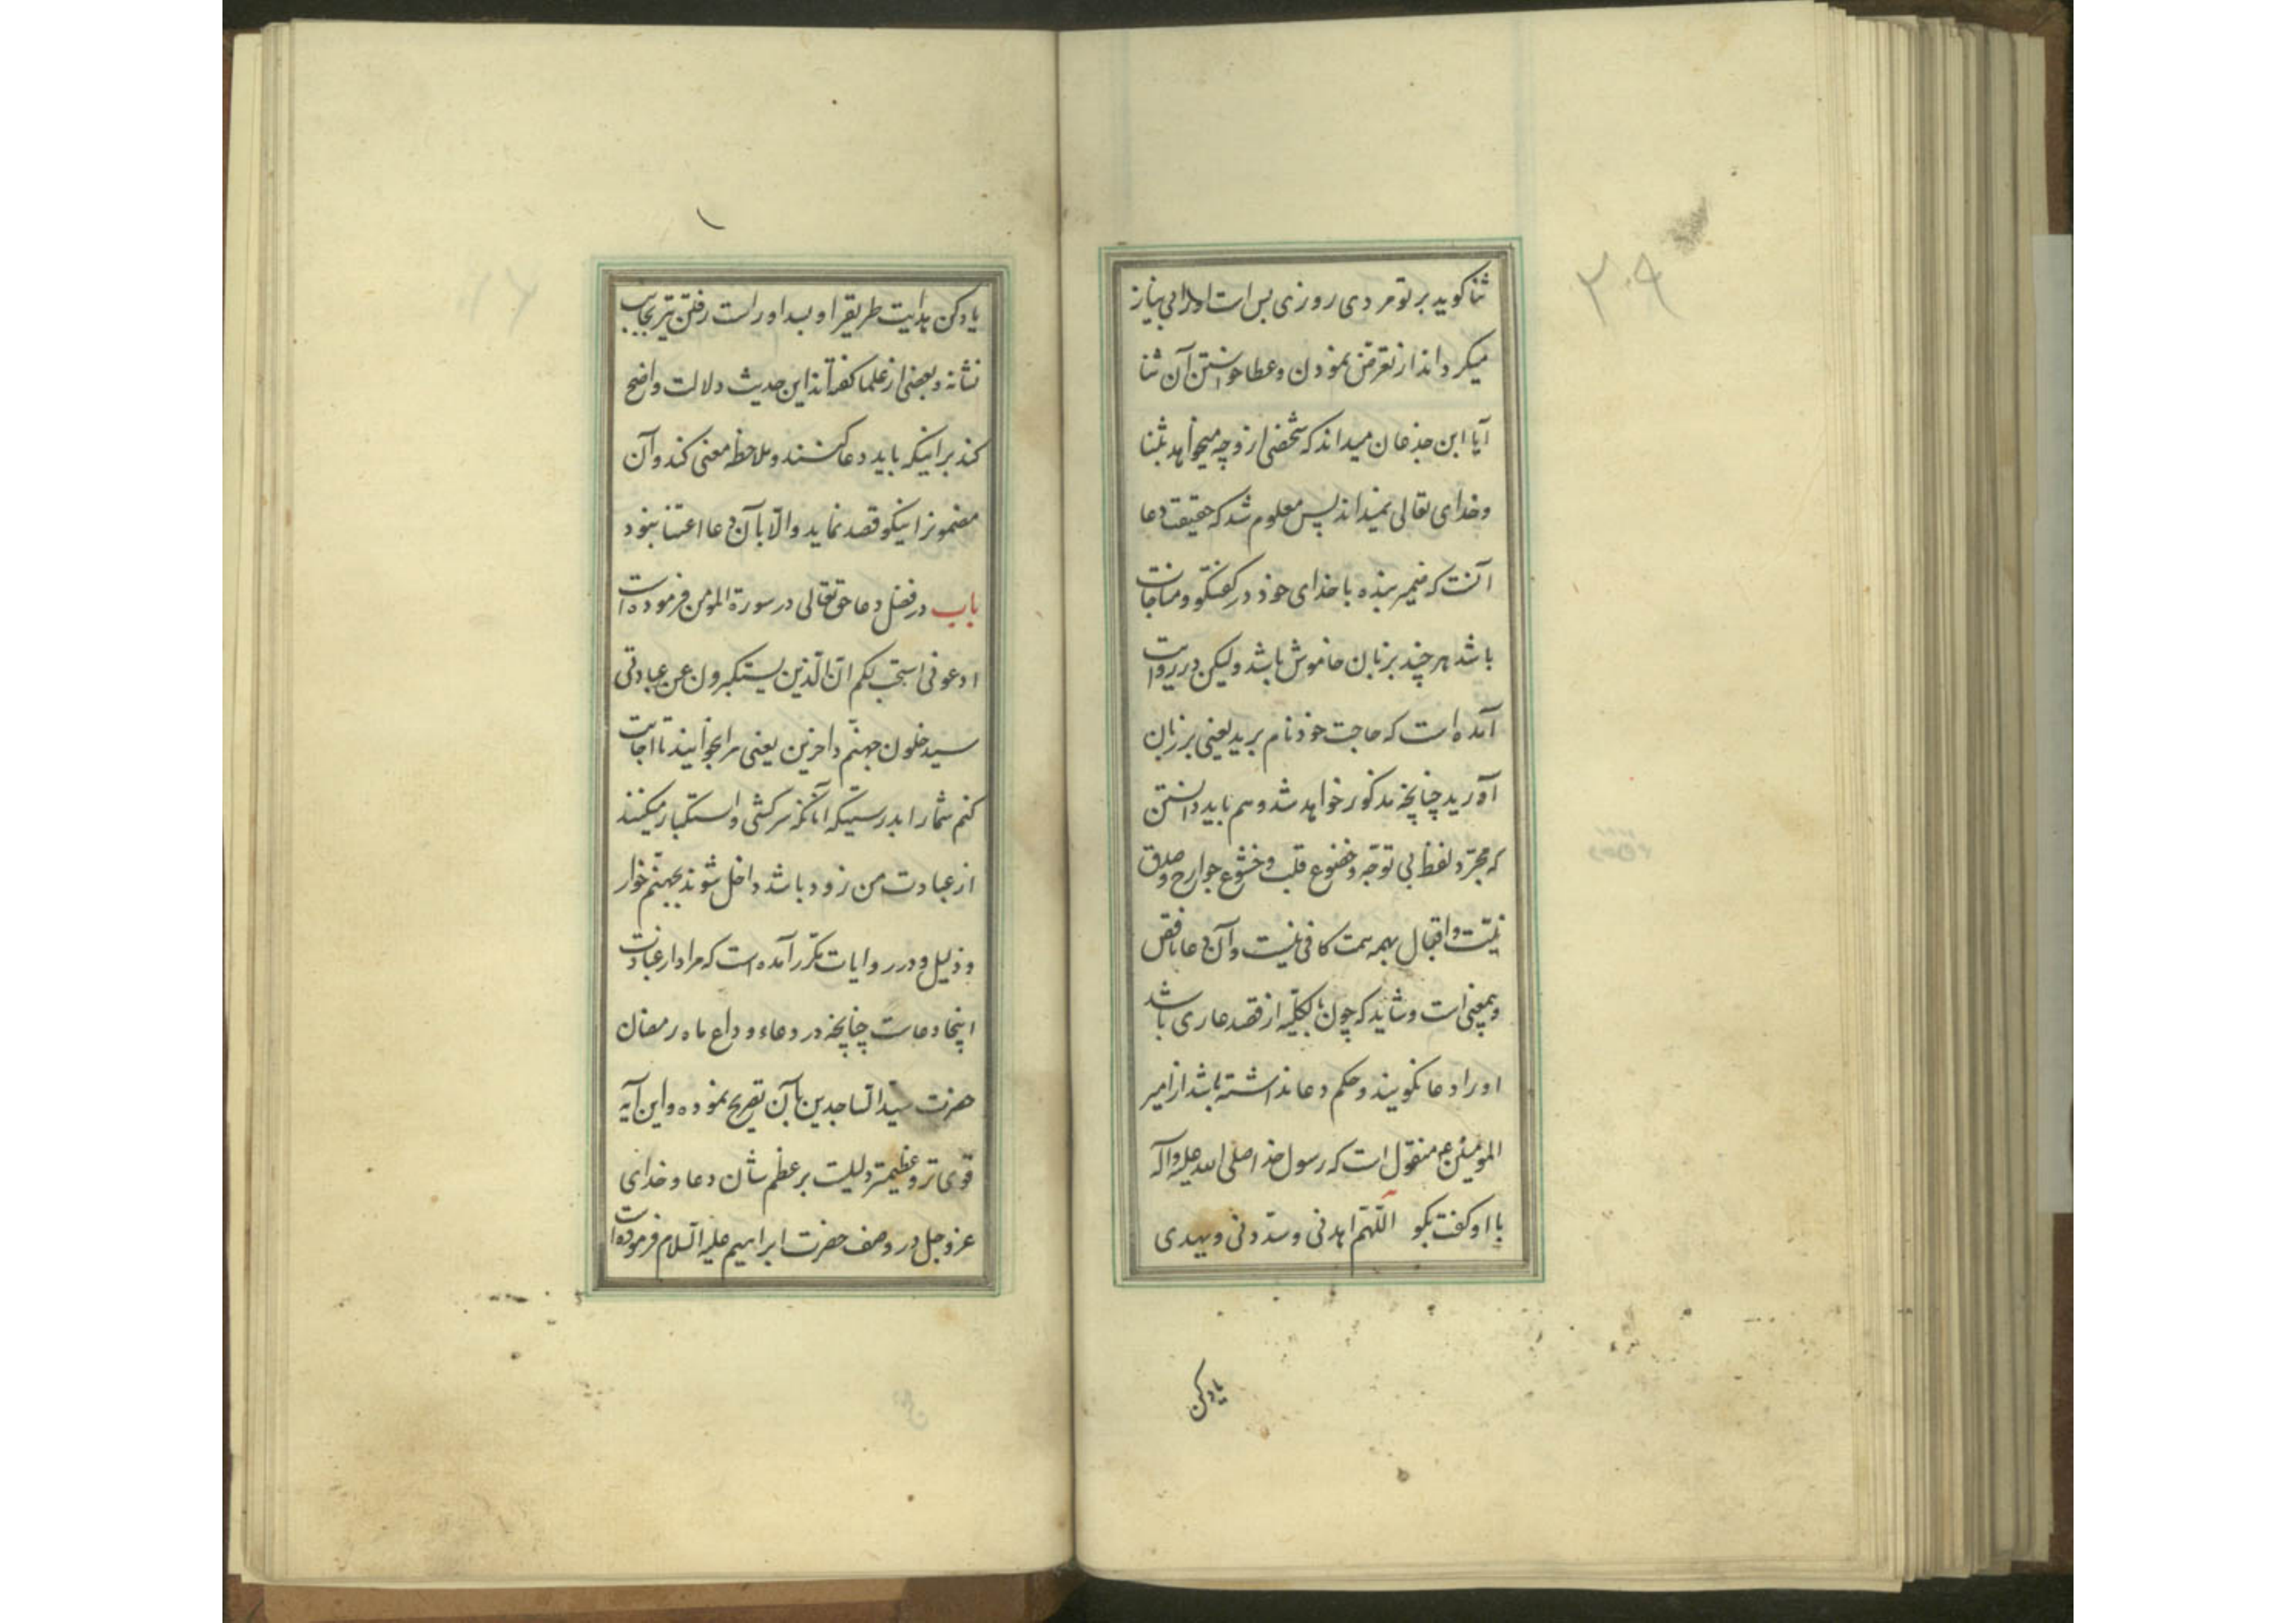 ۳۰۹
ثنا کوید بر تو مردی روزی بس است او را بی نیاز
میکرداند از تعرض نمودن و عطا خواستن آن ثنا
آیا ابن جذعان میداند که شخصی از و چه میخواهد بثنا
وخدای تعالی نمیداند پس معلوم شد که حقیقت دعا
آنست که ضمیر بنده با خدای خود در کفتکو و مناجات
باشد هر چند بزبان خاموش باشد ولیکن در روایت
آمده است که حاجت خود نام برید یعنی بر زبان
آورید چنانچه مذکور خواهد شد و هم باید دانستن
که مجرّد لفظ بی توجّه و خضوع قلب و خشوع جوارح و صدق
نیّت و اقبال بهمه همت کافی نیست و آن دعا ناقص
و بیمعنی است و شاید که چون بکلیّه از قصد عاری باشد
او را دعا نکویند و حکم دعا نداشته باشد از امیر
المومنین ع منقول است که رسول خدا صلی الله علیه وآله
با او کفت بکو اللّهمّ اهدنی و سدّدنی و بهدی
یادکن
یادکن هدایت طریقرا و بسداد راست رفتن تیر بجانب
نشانه و بعضی از علما کفته‌اند این حدیث دلالت واضح
کند بر اینکه باید دعا کنند و ملاحظه معنی کند و آن
مضمونرا نیکو قصد نماید و الّا بآن دعا اعتنا نبود
باب در فضل دعا حق تعالی در سورة المومن فرموده است
ادعونی استجب لکم انّ الّذین یستکبرون عن عبادتی
سیدخلون جهنّم داخرین یعنی مرا بخوانید تا اجابت
کنم شمارا بدرستیکه آنانکه سرکشی و استکبار میکنند
از عبادت من زود باشد داخل شوند بجهنّم خوار
و ذلیل و در روایات مکرّر آمده است که مراد از عبادت
اینجا دعاست چنانچه در دعاء وداع ماه رمضان
حضرت سیّد السّاجدین بآن تصریح نموده و این آیه
قوی تر و عظیمتر دلیلست بر عظم شان دعا و خدای
عز و جل در وصف حضرت ابراهیم علیه السّلام فرموده است